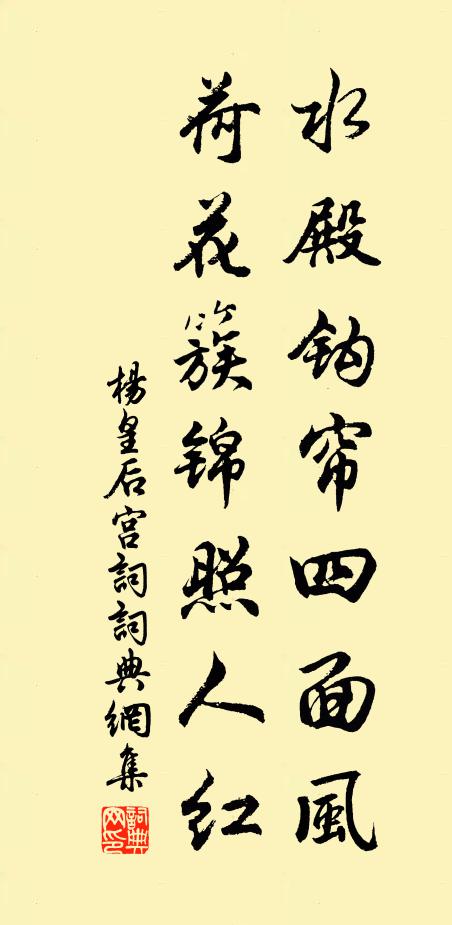 水殿鈎帘四面風
荷花簇锦照人红
楊皇后宫詞詞典網集
詞典网印